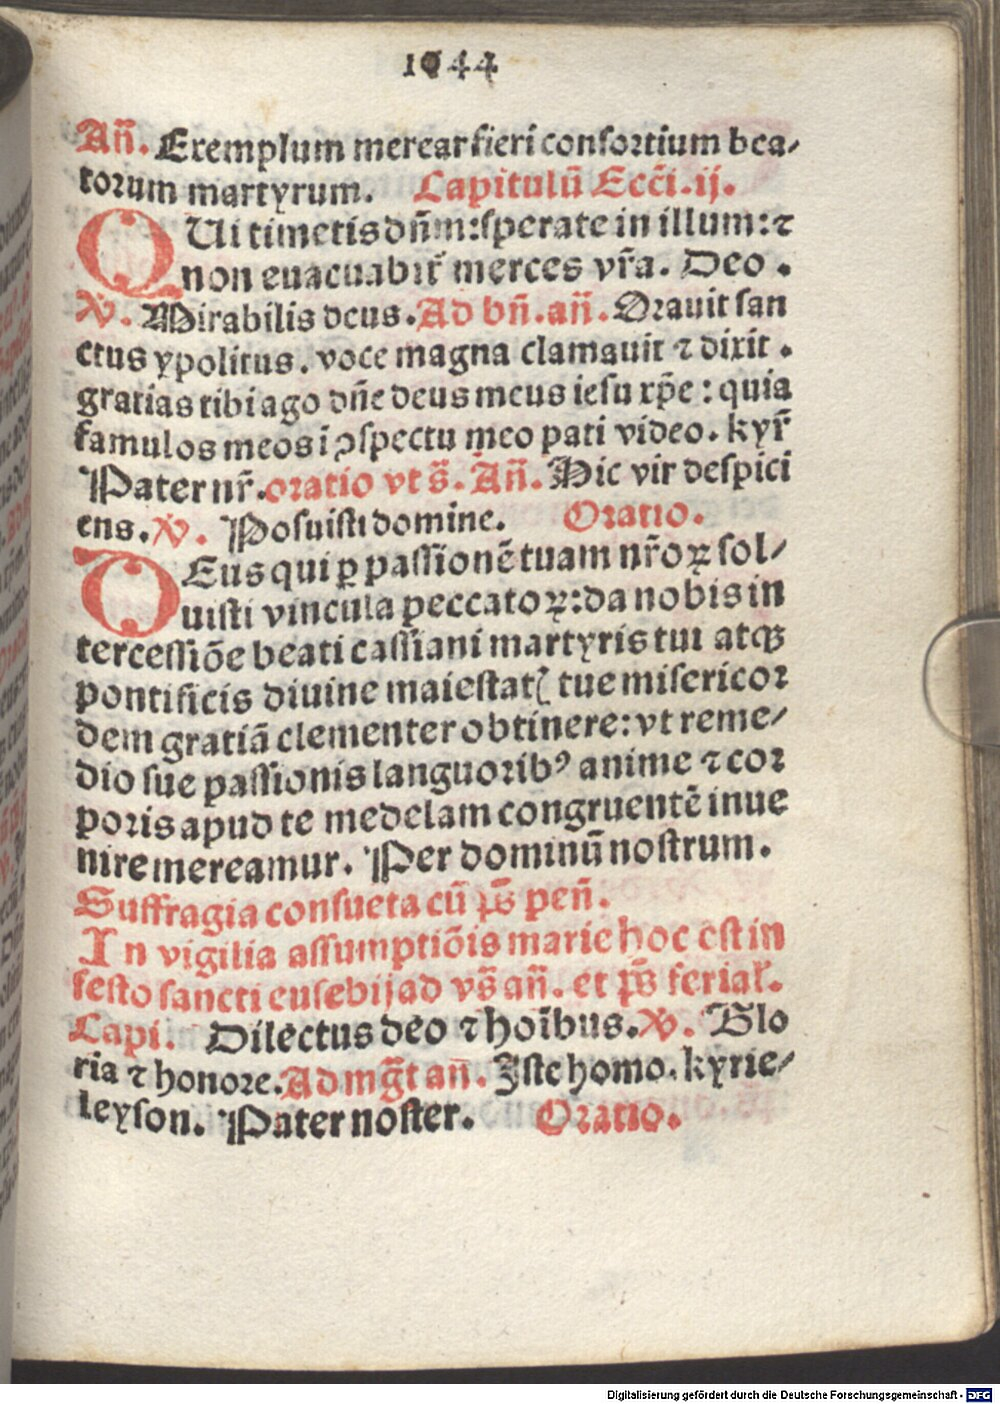 1044
Añ. Exemplum merear fieri consortium bea-
torum martyrum. Capitulū Ecc̄i.ij.
QUi timetis dn̄m: sperate in illum: ⁊
non euacuabit᷑ merces vr̄a. Deo.
℣. Mirabilis deus. Ad bn̄. añ. Orauit san
ctus ypolitus. voce magna clamauit ⁊ dixit.
gratias tibi ago dn̄e deus meus iesu xp̄e: quia
famulos meos ī ꝯspectu meo pati video. kyr̄
Pater nr̄. oratio vt s̄. Añ. Hic vir despici
ens. ℣. Posuisti domine. Oratio.
DEus qui ꝑ passionē tuam nr̄oꝝ sol-
uisti vincula peccatoꝝ: da nobis in
tercessiōe beati cassiani martyris tui atqꝫ
pontificis diuine maiestatꝭ tue misericor
dem gratiā clementer obtinere: vt reme-
dio sue passionis languoribꝰ anime ⁊ cor
poris apud te medelam congruentē inue
nire mereamur. Per dominū nostrum.
Suffragia consueta cū p̄s pen̄.
In vigilia assumptiōis marie hoc est in
festo sancti eusebij ad vs̄ añ. et p̄s ferial̄.
Capi. Dilectus deo ⁊ hoībus. ℣. Glo
ria ⁊ honore. Ad mḡt añ. Iste homo. kyrie-
leyson. Pater noster. Oratio.
Digitalisierung gefördert durch die Deutsche Forschungsgemeinschaft - DFG